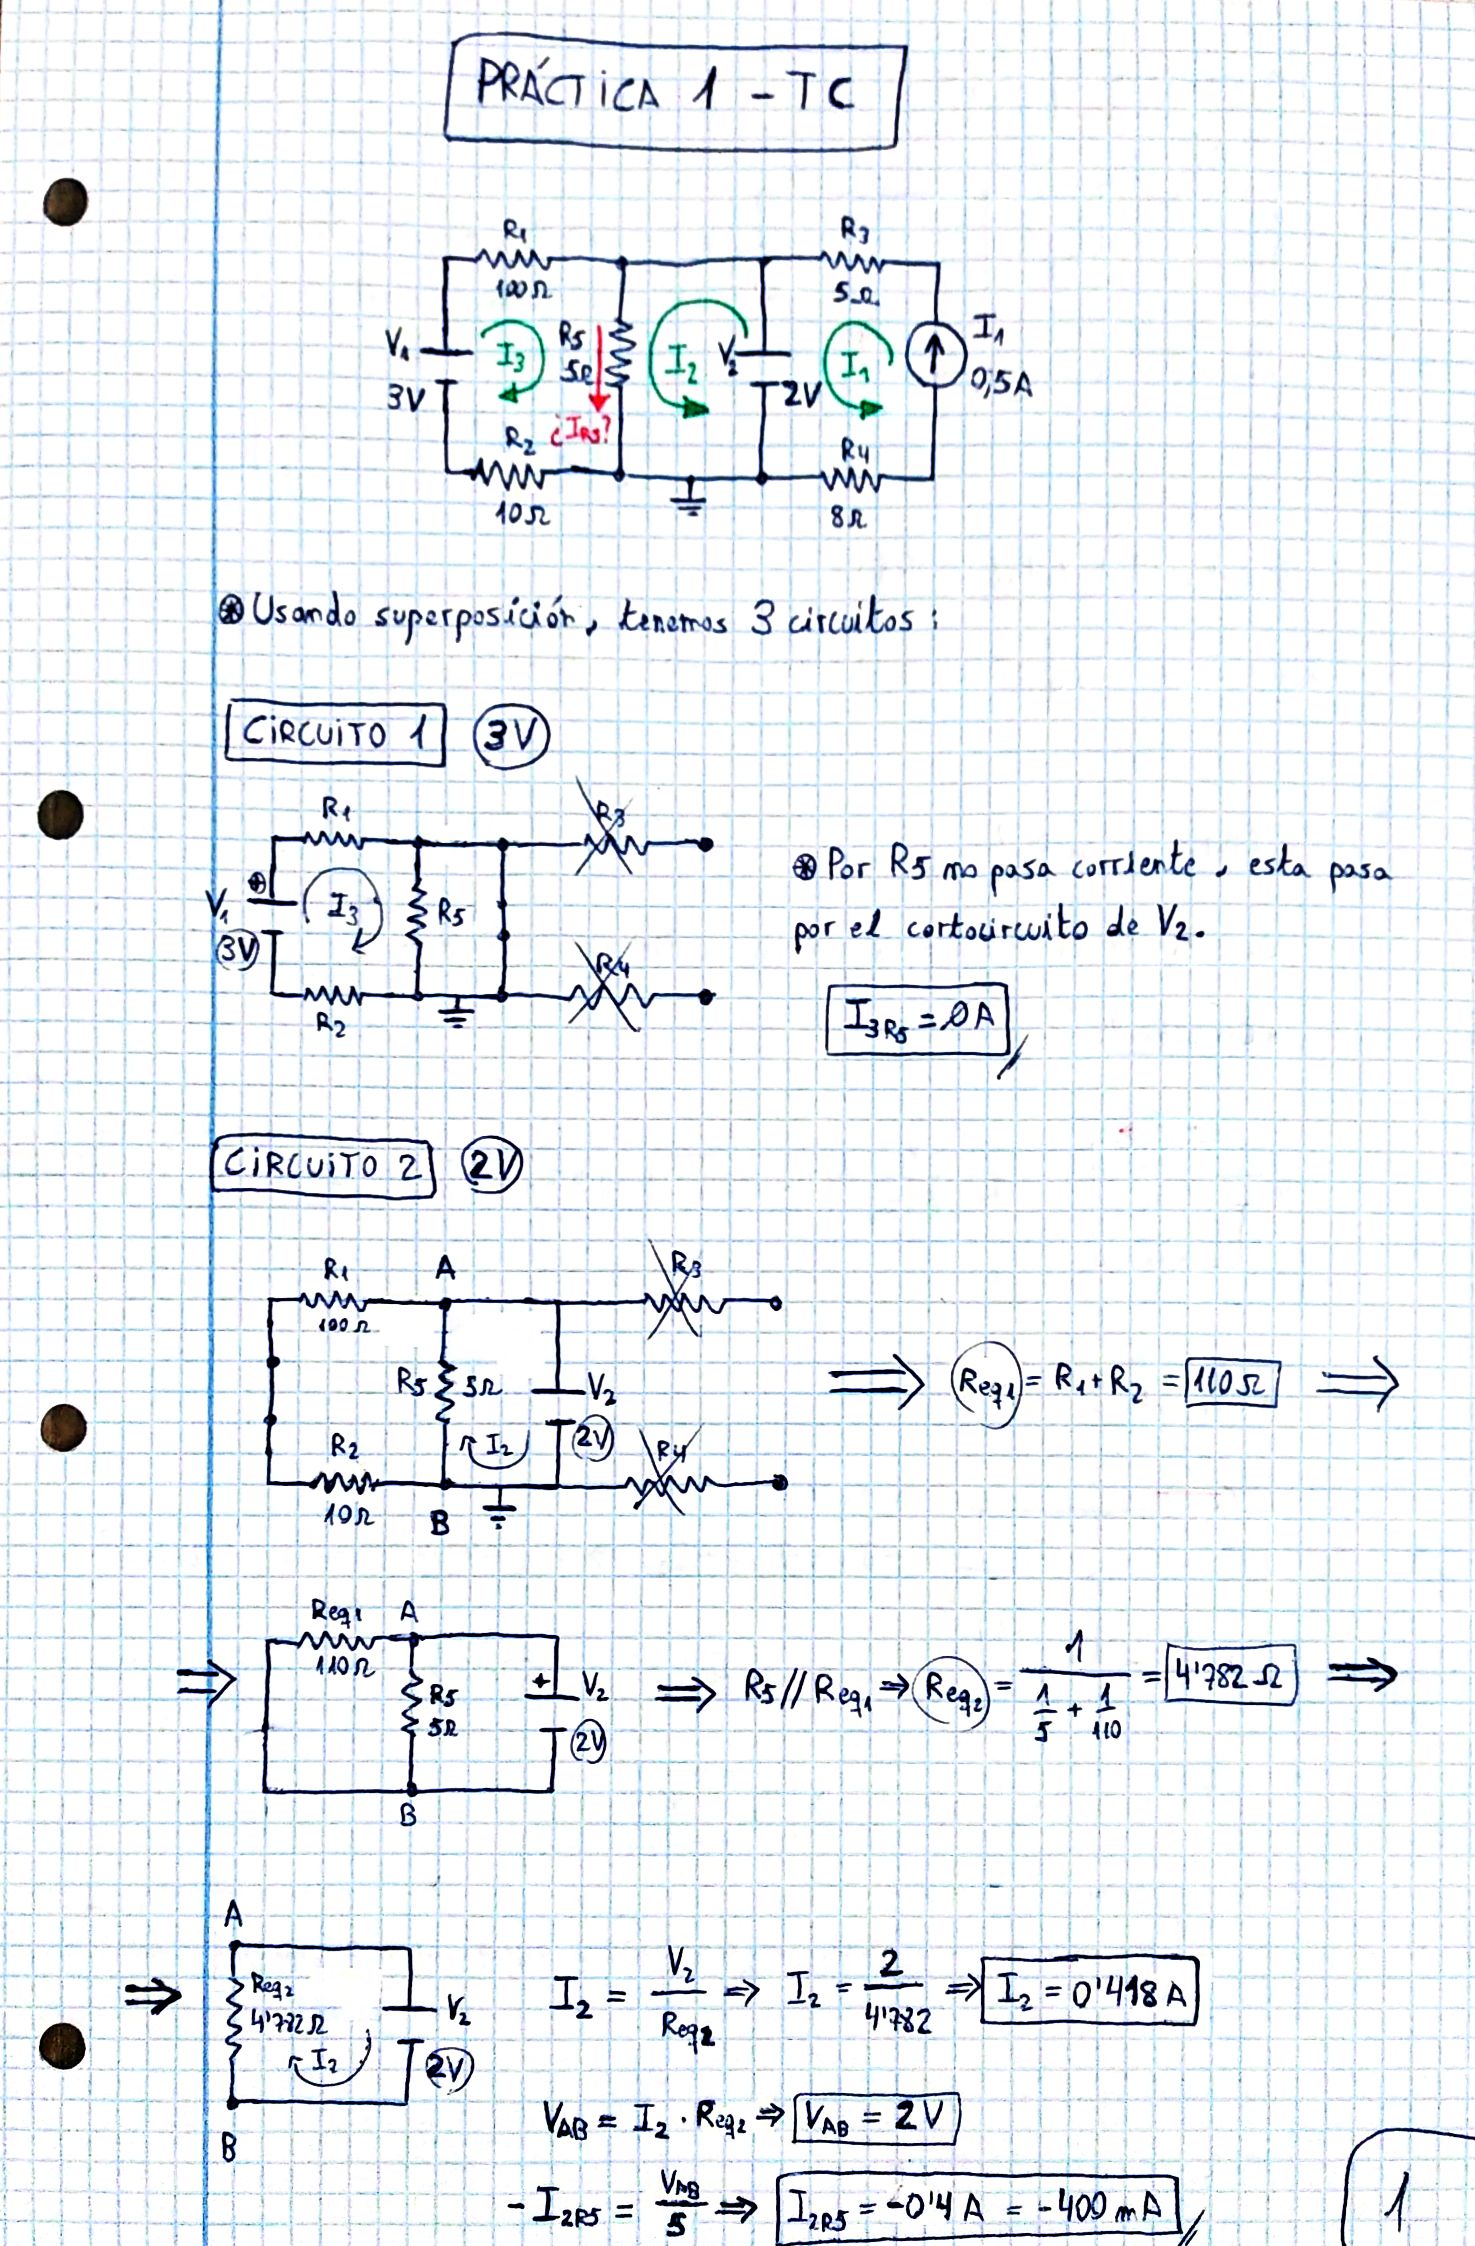 PRÁCTICA 1 - TC
R1
100Ω
R3
5Ω
V1
3V
I3
R5
5Ω
¿IR5?
I2
V2
2V
I1
I1
0,5A
R2
10Ω
R4
8Ω
⊛ Usando superposición, tenemos 3 circuitos:
CIRCUITO 1 3V
R1
R3
V1
+
3V
I3
R5
R2
R4
⊛ Por R5 no pasa corriente, esta pasa
por el cortocircuito de V2.
I3R5 = 0A
CIRCUITO 2 2V
R1
100Ω
A
R3
R5 5Ω
V2
2V
I2
R2
10Ω
B
R4
⟹ Req1 = R1 + R2 = 110Ω ⟹
⟹
Req1
110Ω
A
R5
5Ω
+
V2
2V
B
⟹ R5 // Req1 ⇒ Req2 = 1 / (1/5 + 1/110) = 4'782 Ω ⟹
⟹
A
Req2
4'782Ω
I2
V2
2V
B
I2 = V2/Req2 ⇒ I2 = 2/4'782 ⇒ I2 = 0'418A
VAB = I2 · Req2 ⇒ VAB = 2V
- I2R5 = VAB/5 ⇒ I2R5 = -0'4A = -400mA
1